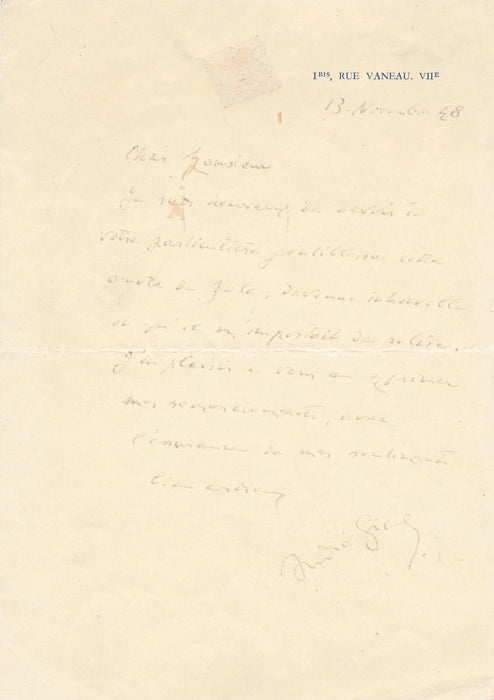 1BIS, RUE VANEAU. VIIE
13. Novembre 48
Cher Monsieur
Je suis heureux de devoir à
votre particulière gentillesse cette
œuvre de Zola, devenue introuvable
et qu'il m'importait de relire.
J'ai plaisir à vous en exprimer
mes remerciements, avec
l'assurance de mes sentiments
bien cordiaux
André Gide